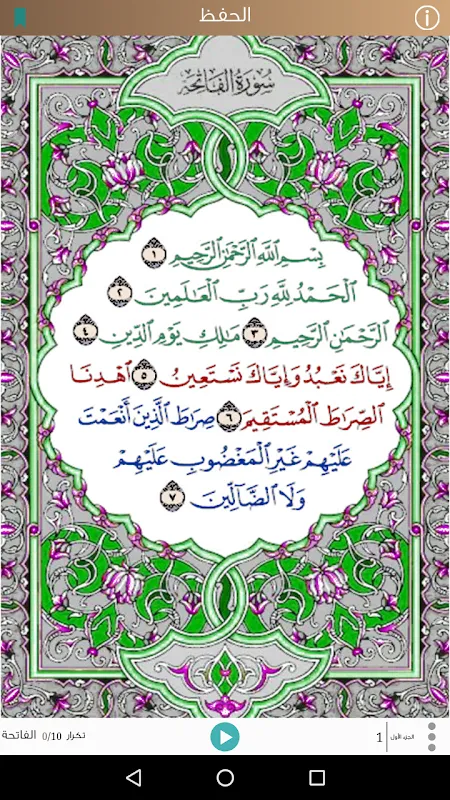 الحفظ
سُورَةُ الفَاتِحَةِ
بِسْمِ ٱللَّهِ ٱلرَّحْمَٰنِ ٱلرَّحِيمِ ١
ٱلْحَمْدُ لِلَّهِ رَبِّ ٱلْعَٰلَمِينَ ٢
ٱلرَّحْمَٰنِ ٱلرَّحِيمِ ٣ مَٰلِكِ يَوْمِ ٱلدِّينِ ٤
إِيَّاكَ نَعْبُدُ وَإِيَّاكَ نَسْتَعِينُ ٥ ٱهْدِنَا
ٱلصِّرَٰطَ ٱلْمُسْتَقِيمَ ٦ صِرَٰطَ ٱلَّذِينَ أَنْعَمْتَ
عَلَيْهِمْ غَيْرِ ٱلْمَغْضُوبِ عَلَيْهِمْ
وَلَا ٱلضَّآلِّينَ ٧
الجزء الأول 1 تكرار 0/10 الفاتحة